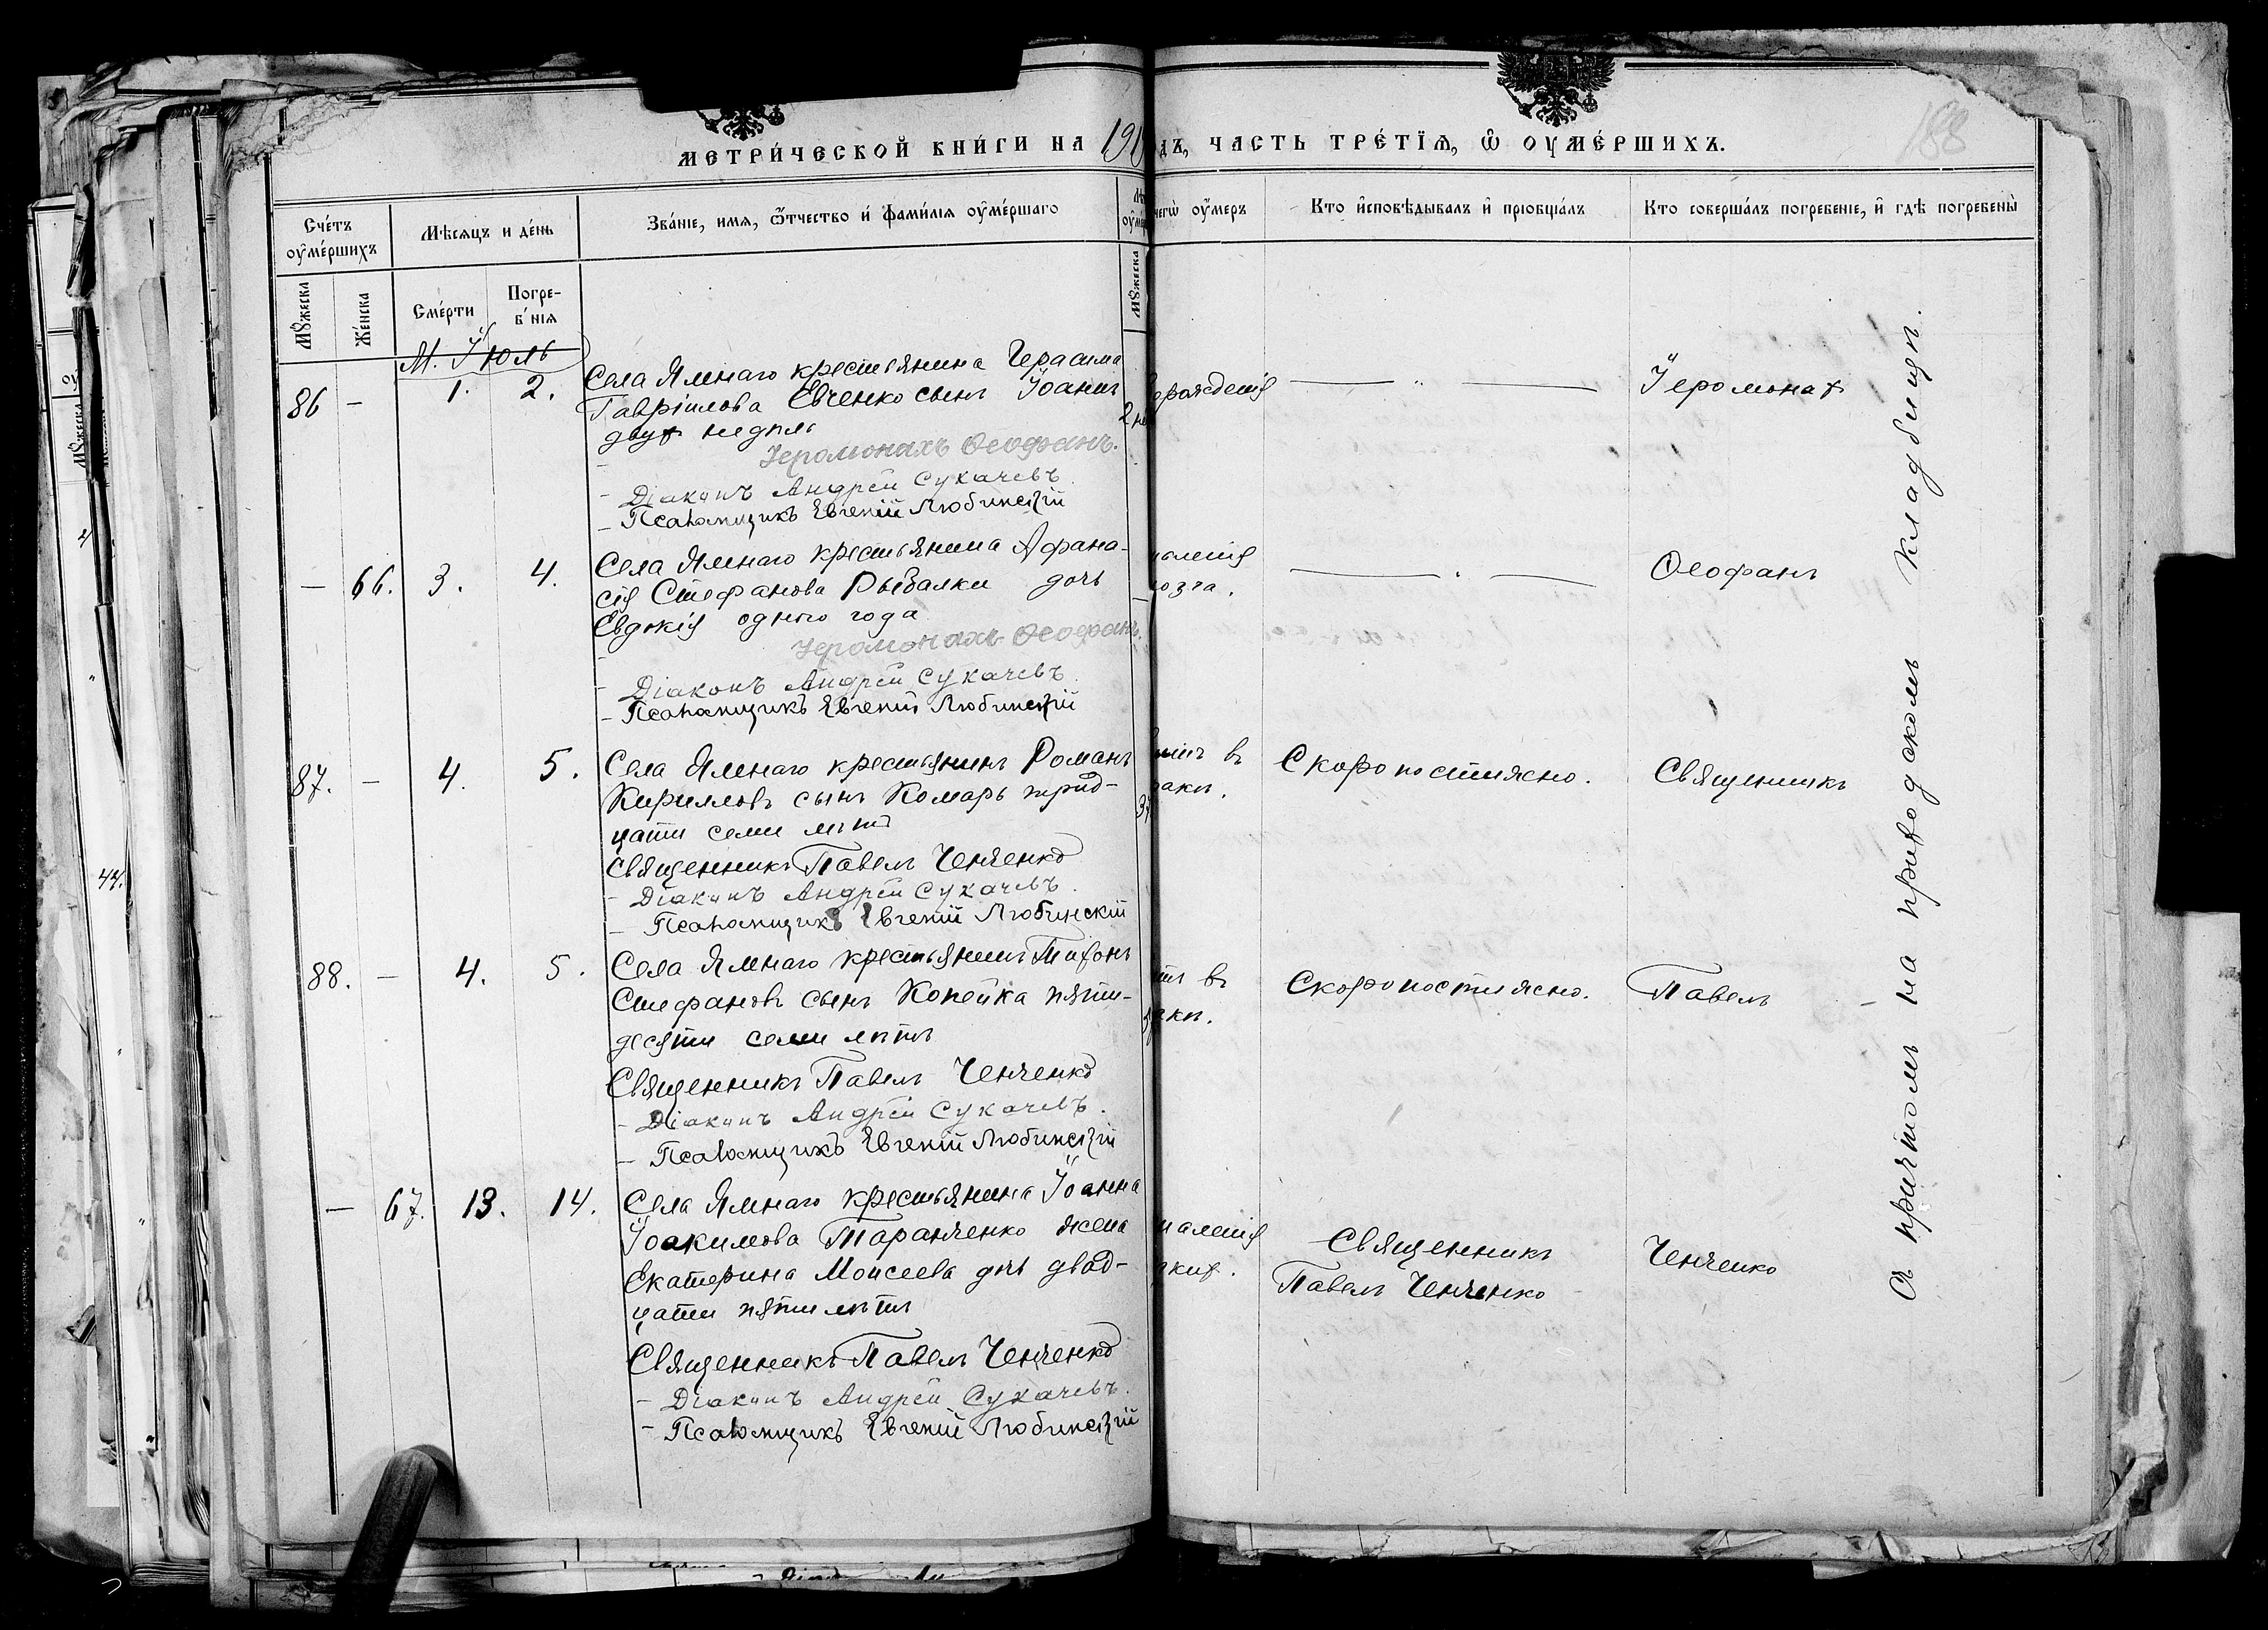 188
МЕТРИ́ЧЕСКОЙ КНИ́ГИ НА 191 ДЪ, ЧАСТЬ ТРЕ́ТІѦ, Ѿ ОУМЕ́РШИХЪ.
Сче́тъ оуме́ршихъ
Мѣ́сяцъ и де́нь
Зва́ніе, имя, ѿтчество и фами́лія оуме́ршаго
чегѡ оу́меръ
Кто исповѣ́дывалъ и пріобща́лъ
Кто соверша́лъ погребе́ніе, и гдѣ погребены̀
Мꙋжеска
Же́нска
Сме́рти
Погребе́нія
Мꙋжеска
М. Іюль
86 – 1. 2. Села Ямнаго крестьянина Герасима
Гавріилова Евченко сынъ Іоаннъ
двух недѣль
Іеромонахъ Ѳеофанъ.
– Діаконъ Андрей Сукачевъ
– Псаломщикъ Евгеній Любинскій
2 не
рожденія
— " —
Іеромонах
– 66. 3. 4. Села Ямнаго крестьянина Афана-
сія Стефанова Рыбалки дочь
Евдокія одного года
Іеромонахъ Ѳеофанъ.
– Діаконъ Андрей Сукачевъ
– Псаломщикъ Евгеній Любинскій
паленія
мозга.
— . —
Ѳеофанъ
87. – 4. 5. Села Ямнаго крестьянинъ Романъ
Кирилловъ сынъ Комарь трид-
цати семи лѣтъ
Священникъ Павелъ Ченченко
– Діаконъ Андрей Сукачевъ.
– Псаломщикъ Евгеній Любинскій
37
въ
Скоропостижно.
Священникъ
88. – 4. 5. Села Ямнаго крестьянинъ Тихонъ
Стефановъ сынъ Копейка пяти-
десяти семи лѣтъ
Священникъ Павелъ Ченченко
– Діаконъ Андрей Сукачевъ.
– Псаломщикъ Евгеній Любинскій
въ
Скоропостижно.
Павелъ
– 67. 13. 14. Села Ямнаго крестьянина Іоанна
Іоакимова Таранченко жена
Екатерина Моисеева дочь двад-
цати пяти лѣтъ
Священникъ Павелъ Ченченко
– Діаконъ Андрей Сукачевъ.
– Псаломщикъ Евгеній Любинскій
паленія
Священникъ
Павелъ Ченченко
Ченченко
Съ причтомъ на приходскомъ кладбищѣ.
44.